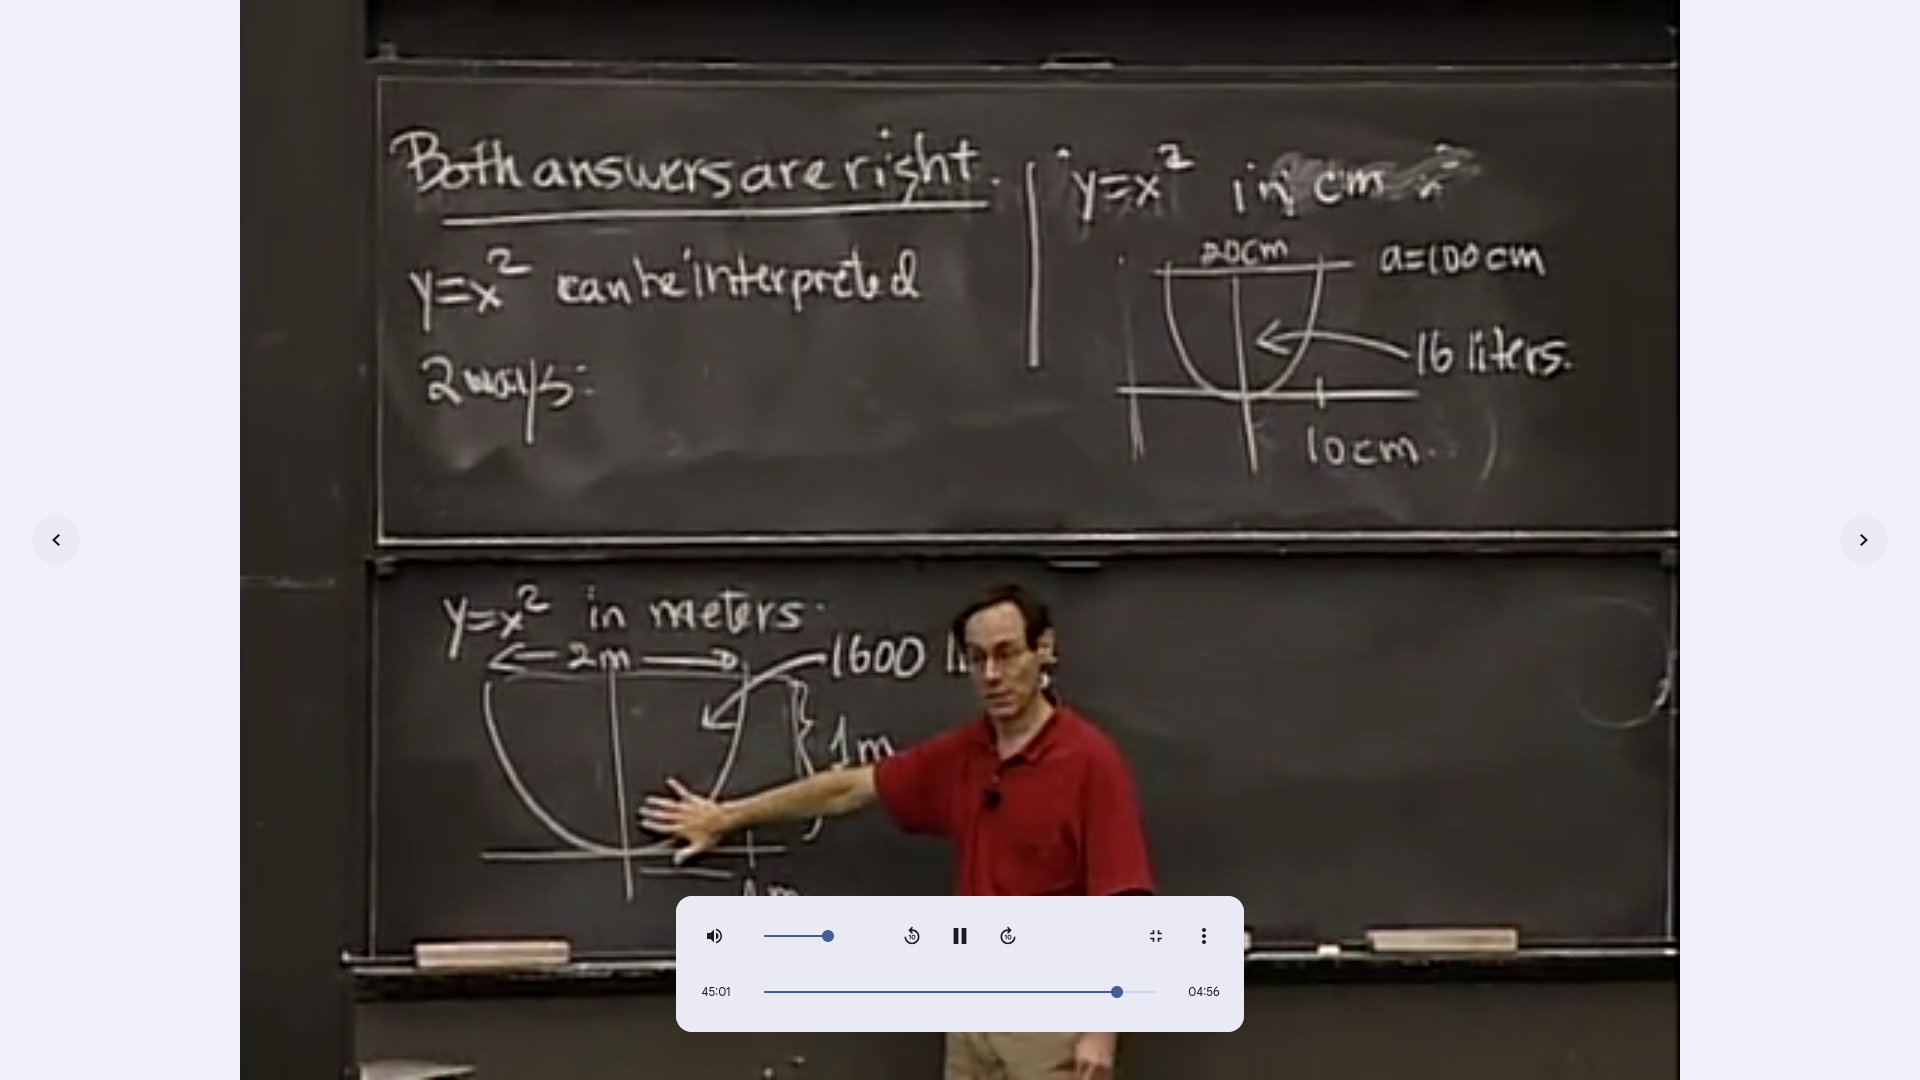 Both answers are right.
y=x² can be interpreted
2 ways:
y=x² in cm
20cm
a=100cm
16 liters.
10cm.
y=x² in meters.
2m
1600
1m
45:01
04:56